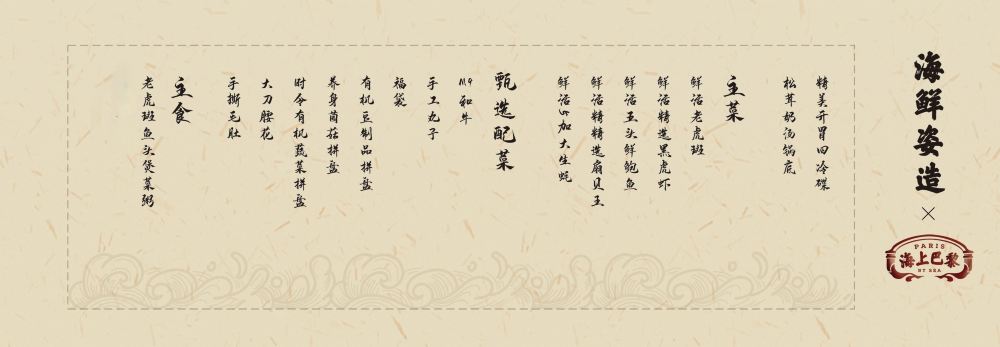 海鲜姿造
×
PARIS
海上巴黎
BY SEA
精美开胃四冷碟
松茸奶汤锅底
主菜
鲜活老虎斑
鲜活精选黑虎虾
鲜活玉头鲜鲍鱼
鲜活精精选扇贝王
鲜活咕加大生蚝
甄选配菜
M9和牛
手工丸子
福袋
有机豆制品拼盘
养身菌菇拼盘
时令有机蔬菜拼盘
大刀腰花
手撕毛肚
主食
老虎斑鱼头煲菜粥